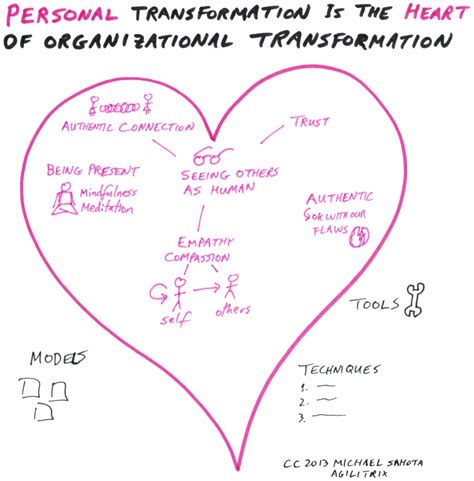 PERSONAL TRANSFORMATION IS THE HEART
OF ORGANIZATIONAL TRANSFORMATION
AUTHENTIC CONNECTION
TRUST
BEING PRESENT
Mindfulness
Meditation
SEEING OTHERS
AS HUMAN
AUTHENTIC
OK WITH OUR
FLAWS
EMPATHY
COMPASSION
self
others
TOOLS
MODELS
TECHNIQUES
1.
2.
3.
CC 2013 MICHAEL SAHOTA
AGILITRIX